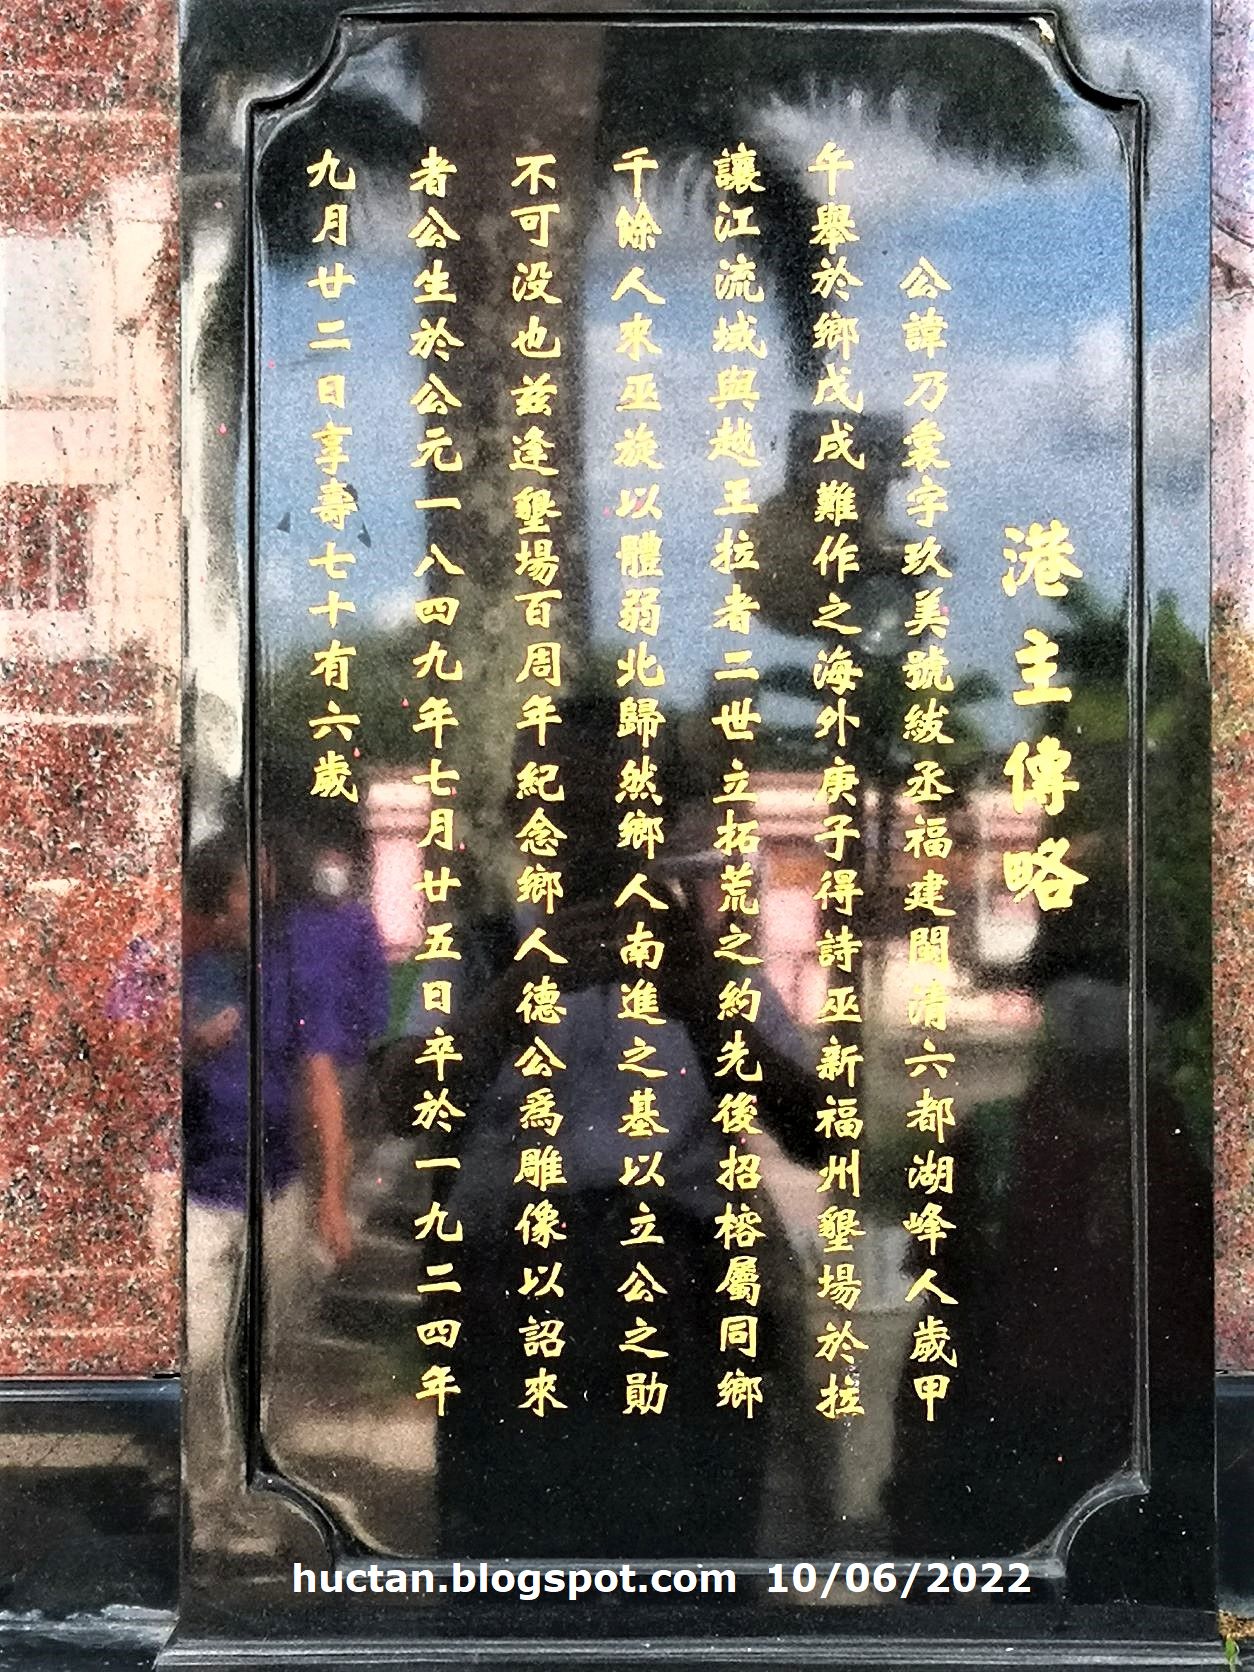 港主傳略
公諱乃裳字玖美號紱丞福建閩清六都湖峰人歲甲
午舉於鄉戊戌難作之海外庚子得詩巫新福州墾場於拉
讓江流域與越王拉者二世立拓荒之約先後招榕屬同鄉
千餘人來巫旋以體弱北歸然鄉人南進之基以立公之勛
不可没也茲逢墾場百周年紀念鄉人德公爲雕像以詔來
者公生於公元一八四九年七月廿五日卒於一九二四年
九月廿二日享壽七十有六歲
huctan.blogspot.com 10/06/2022